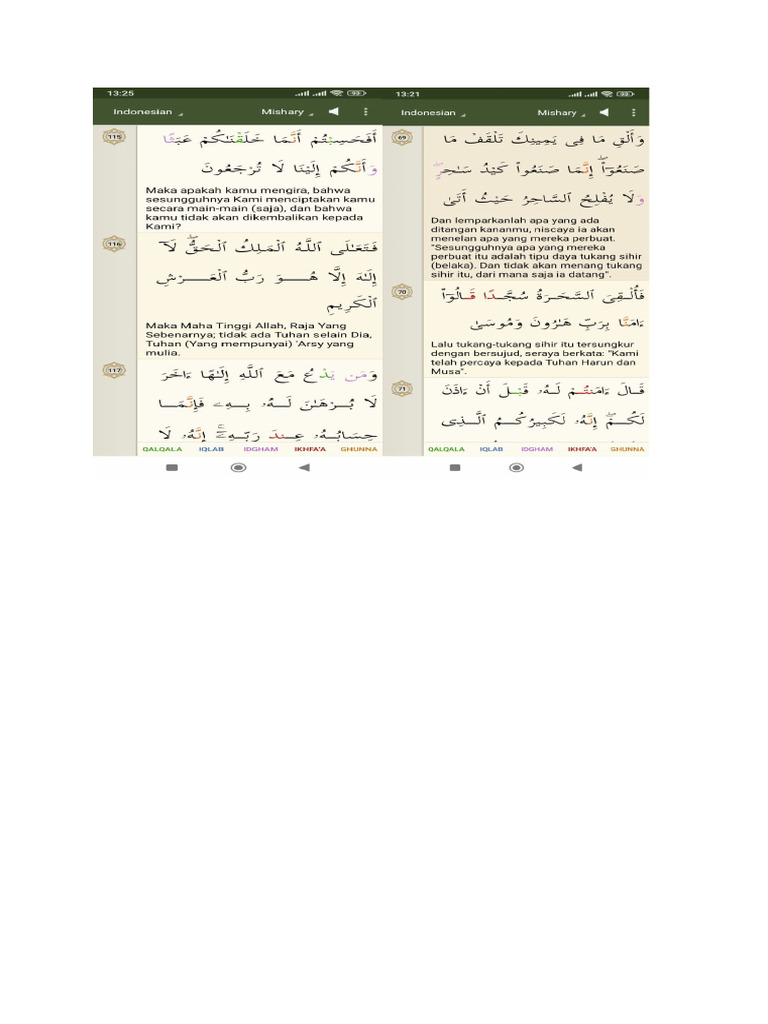 13:25
93
Indonesian
Mishary
115
أَفَحَسِبْتُمْ أَنَّمَا خَلَقْنَٰكُمْ عَبَثًا
وَأَنَّكُمْ إِلَيْنَا لَا تُرْجَعُونَ
Maka apakah kamu mengira, bahwa
sesungguhnya Kami menciptakan kamu
secara main-main (saja), dan bahwa
kamu tidak akan dikembalikan kepada
Kami?
116
فَتَعَٰلَى ٱللَّهُ ٱلْمَلِكُ ٱلْحَقُّ ۖ لَآ
إِلَٰهَ إِلَّا هُوَ رَبُّ ٱلْعَرْشِ
ٱلْكَرِيمِ
Maka Maha Tinggi Allah, Raja Yang
Sebenarnya; tidak ada Tuhan selain Dia,
Tuhan (Yang mempunyai) 'Arsy yang
mulia.
117
وَمَن يَدْعُ مَعَ ٱللَّهِ إِلَٰهًا ءَاخَرَ
لَا بُرْهَٰنَ لَهُۥ بِهِۦ فَإِنَّمَا
حِسَابُهُۥ عِندَ رَبِّهِۦٓ ۚ إِنَّهُۥ لَا
QALQALA IQLAB IDGHAM IKHFA'A GHUNNA
13:21
93
Indonesian
Mishary
69
وَأَلْقِ مَا فِى يَمِينِكَ تَلْقَفْ مَا
صَنَعُوٓا۟ ۖ إِنَّمَا صَنَعُوا۟ كَيْدُ سَٰحِرٍ ۖ
وَلَا يُفْلِحُ ٱلسَّاحِرُ حَيْثُ أَتَىٰ
Dan lemparkanlah apa yang ada
ditangan kananmu, niscaya ia akan
menelan apa yang mereka perbuat.
"Sesungguhnya apa yang mereka
perbuat itu adalah tipu daya tukang sihir
(belaka). Dan tidak akan menang tukang
sihir itu, dari mana saja ia datang".
70
فَأُلْقِىَ ٱلسَّحَرَةُ سُجَّدًا قَالُوٓا۟
ءَامَنَّا بِرَبِّ هَٰرُونَ وَمُوسَىٰ
Lalu tukang-tukang sihir itu tersungkur
dengan bersujud, seraya berkata: "Kami
telah percaya kepada Tuhan Harun dan
Musa".
71
قَالَ ءَامَنتُمْ لَهُۥ قَبْلَ أَنْ ءَاذَنَ
لَكُمْ ۖ إِنَّهُۥ لَكَبِيرُكُمُ ٱلَّذِى
QALQALA IQLAB IDGHAM IKHFA'A GHUNNA